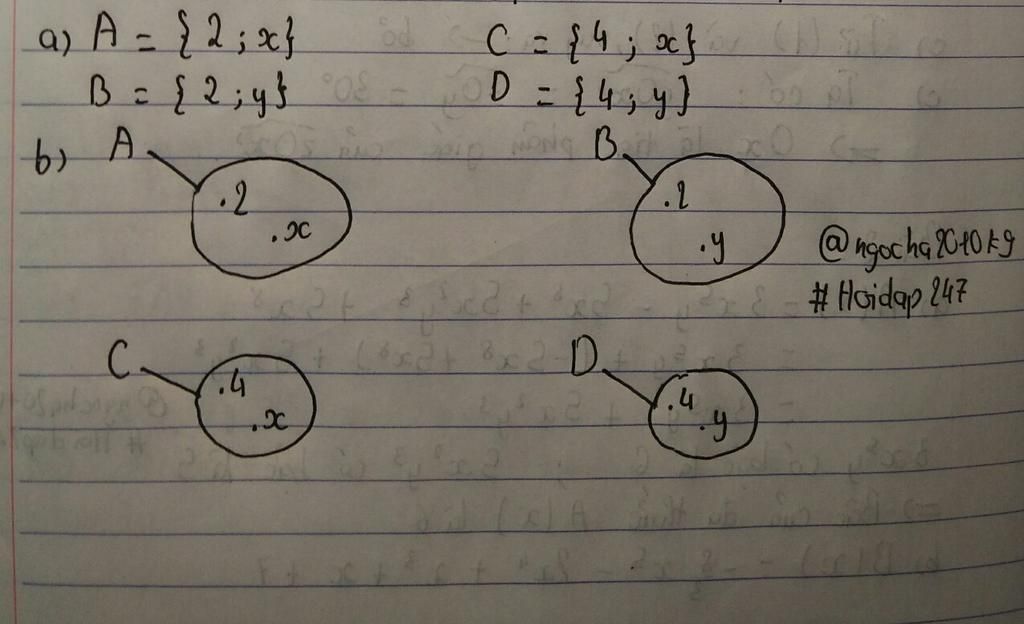 a) A = {2 ; x} C = {4 ; x}
B = {2 ; y} D = {4 ; y}
b) A B
.2 .2
.x .y
@ngocha2010kg
#Hoidap247
C D
.4 .4
.x .y